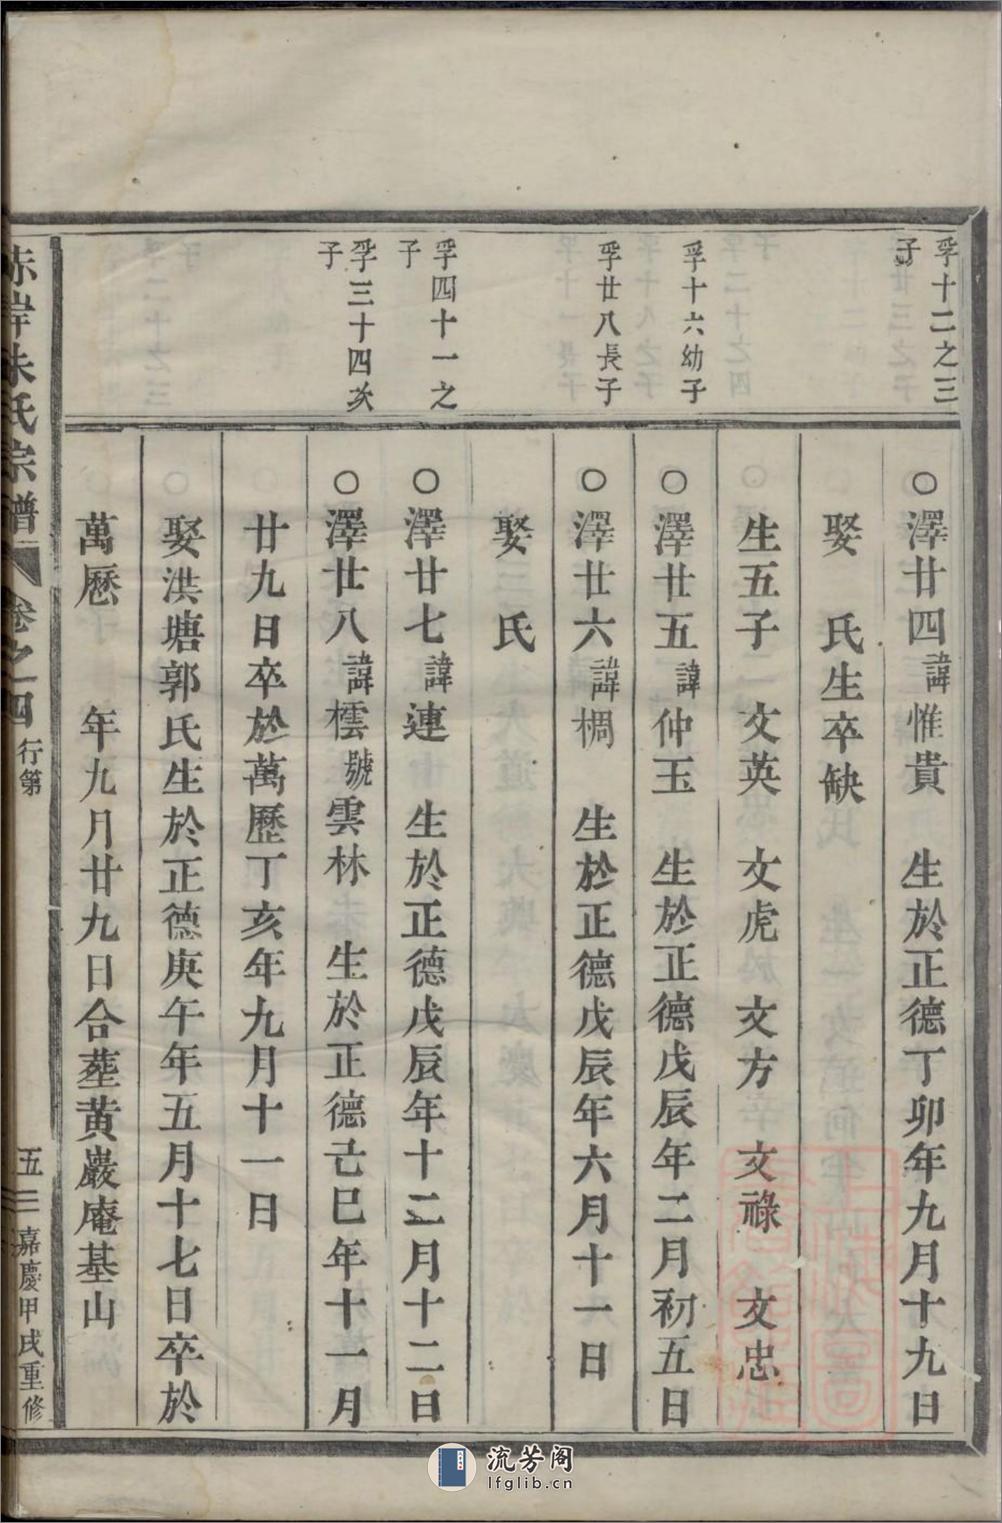 孚十二之三
子
孚十六幼子
孚廿八長子
孚四十一之
子
孚三十四次
子
○澤廿四諱惟貴 生於正德丁卯年九月十九日
娶 氏生卒缺
生五子 文英 文虎 文方 文祿 文忠
○澤廿五諱仲玉 生於正德戊辰年二月初五日
○澤廿六諱椆 生於正德戊辰年六月十一日
娶 氏
○澤廿七諱連 生於正德戊辰年十二月十二日
○澤廿八諱橒號雲林 生於正德己巳年十一月
廿九日卒於萬歷丁亥年九月十一日
娶洪塘郭氏生於正德庚午年五月十七日卒於
萬歷 年九月廿九日合塟黄巖庵基山
赤岸朱氏宗譜 卷之四 行第 五三 嘉慶甲戌重修
流芳阁
lfglib.cn